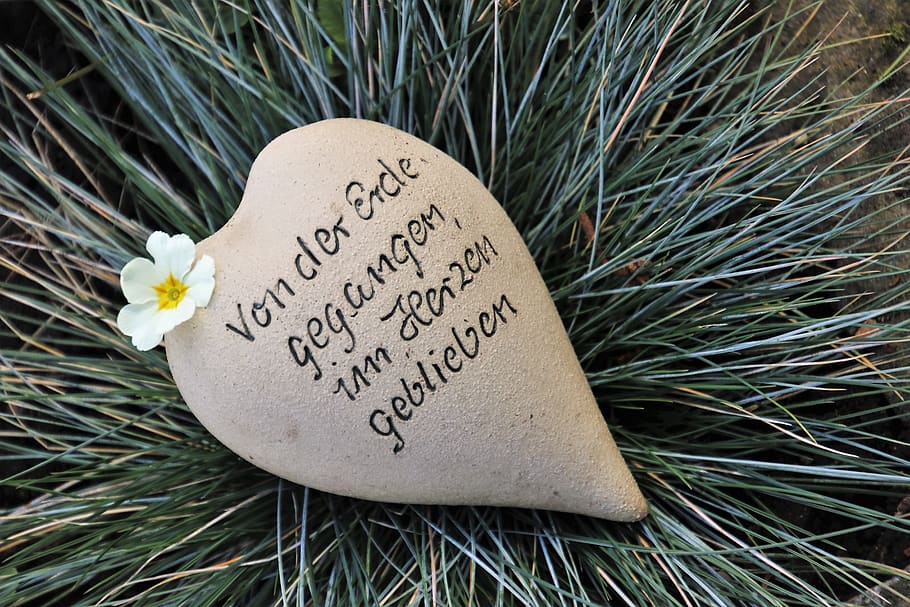 Von der Erde
gegangen,
im Herzen
geblieben